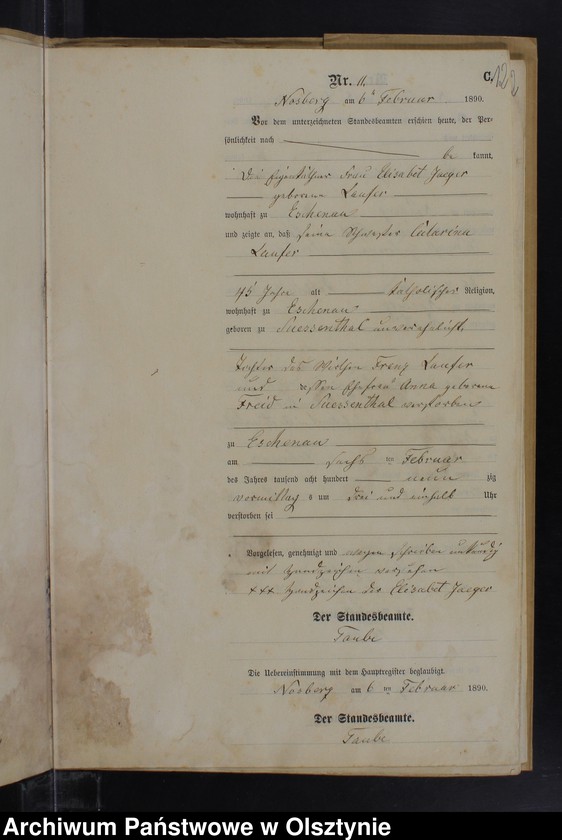 C. 122
Nr. 11.
Nosberg am 6 Februar 1890.
Vor dem unterzeichneten Standesbeamten erschien heute, der Per-
sönlichkeit nach
be kannt,
Frau Elisabet Jaeger
geborene Laufer
wohnhaft zu Eschenau
und zeigte an, daß seine Schwester Catarina
Laufer
45 Jahre alt katholischer Religion,
wohnhaft zu Eschenau
geboren zu Suessenthal unverehelicht,
Tochter des Wirthen Franz Laufer
und dessen Ehefrau Anna geborene
Freid in Suessenthal verstorben
zu Eschenau
am sechs ten Februar
des Jahres tausend acht hundert neun zig
vormittag s um drei und einhalb Uhr
verstorben sei
Vorgelesen, genehmigt und wegen Schreiben unkundig
mit Handzeichen versehen
+++ Handzeichen der Elisabet Jaeger
Der Standesbeamte.
Taube
Die Uebereinstimmung mit dem Hauptregister beglaubigt.
Nosberg am 6 ten Februar 1890.
Der Standesbeamte.
Taube
Archiwum Państwowe w Olsztynie